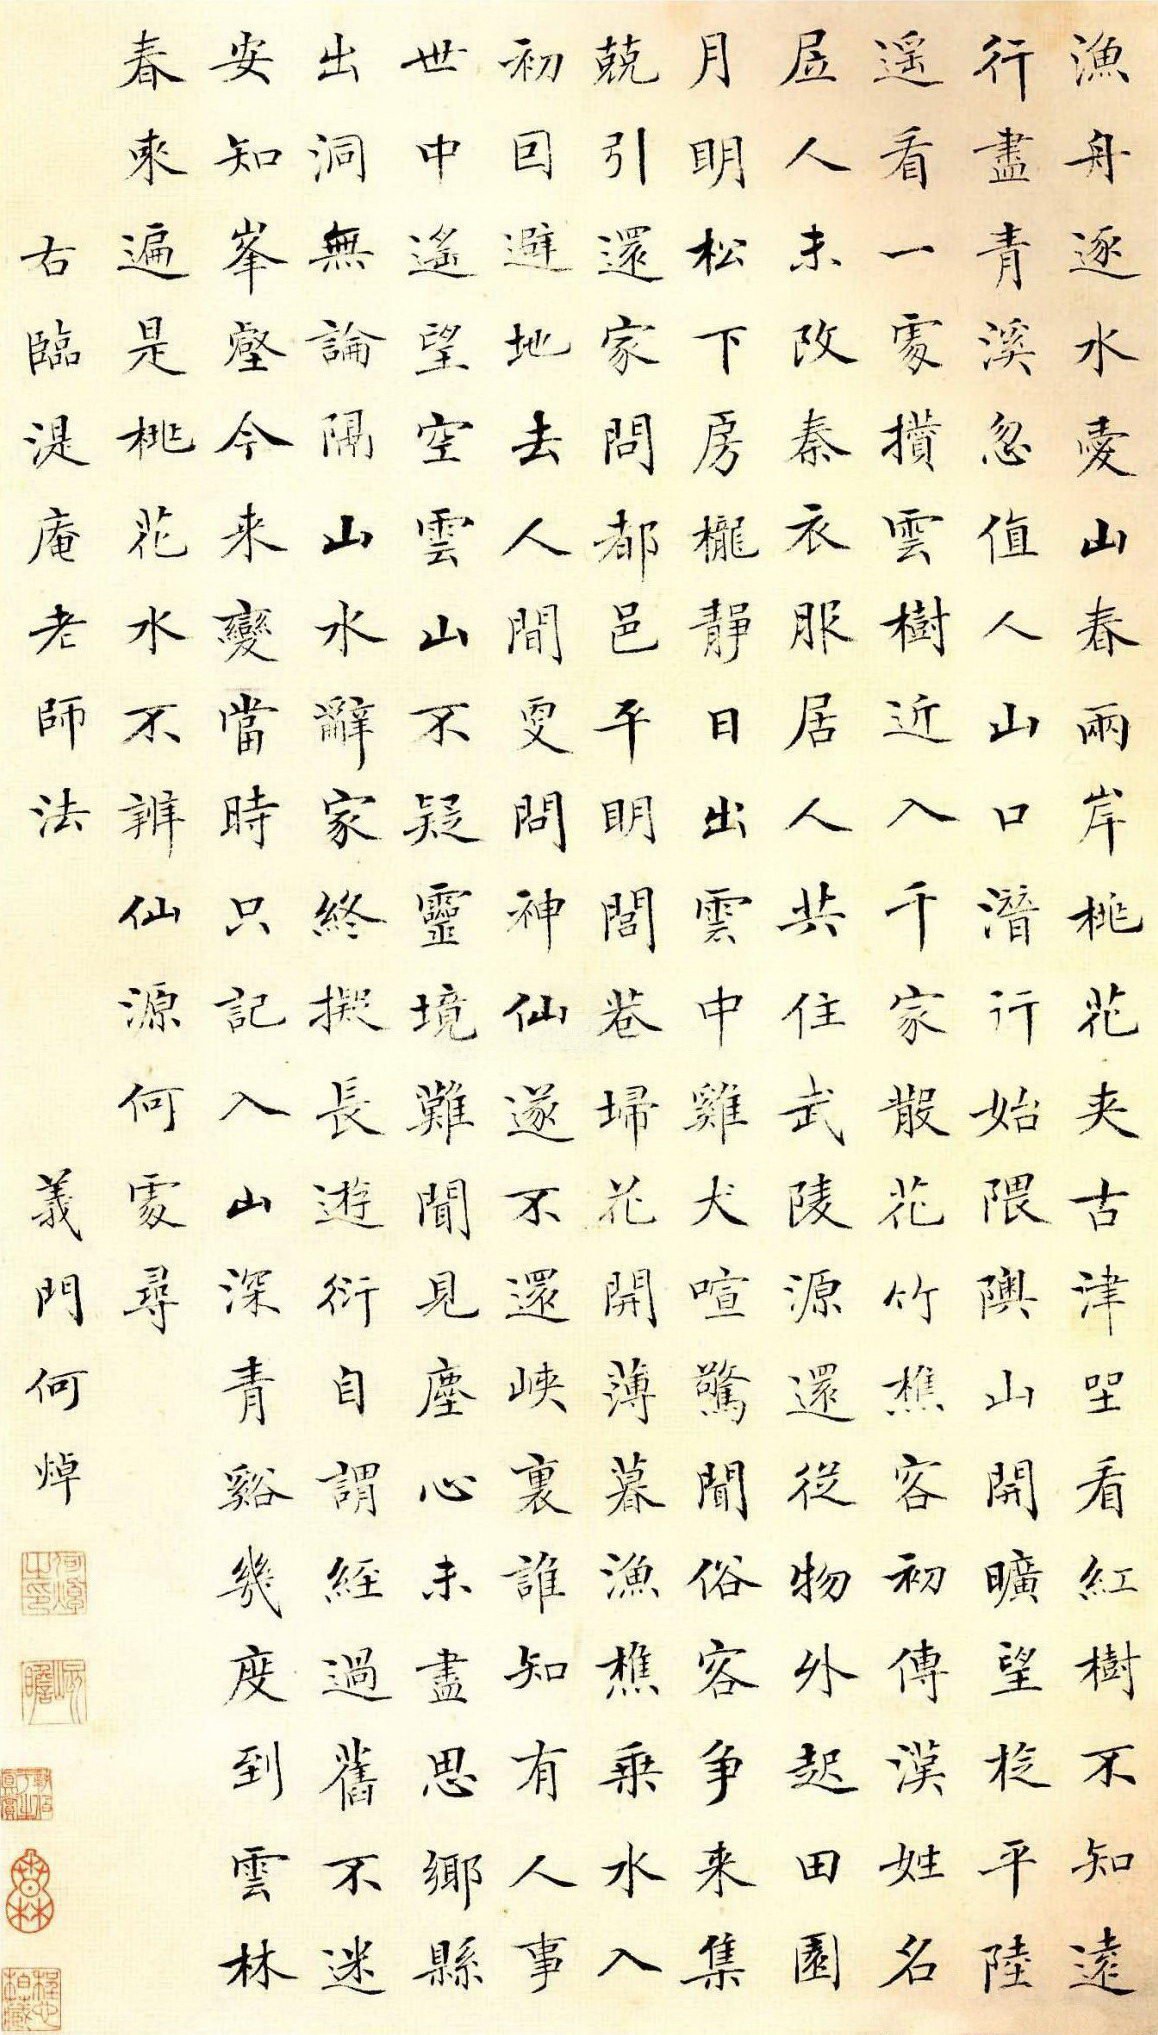 漁舟逐水愛山春兩岸桃花夾古津坐看紅樹不知遠
行盡青溪忽值人山口潛行始隈隩山開曠望旋平陸
遙看一處攢雲樹近入千家散花竹樵客初傳漢姓名
居人未改秦衣服居人共住武陵源還從物外起田園
月明松下房櫳靜日出雲中雞犬喧驚聞俗客爭来集
競引還家問都邑平明閭巷埽花開薄暮漁樵乘水入
初因避地去人間更問神仙遂不還峽裏誰知有人事
世中遙望空雲山不疑靈境難聞見塵心未盡思鄉縣
出洞無論隔山水辭家終擬長遊衍自謂經過舊不迷
安知峯壑今来變當時只記入山深青谿幾度到雲林
春來遍是桃花水不辨仙源何處尋
右臨湜庵老師法 義門何焯
何焯之印
屺瞻